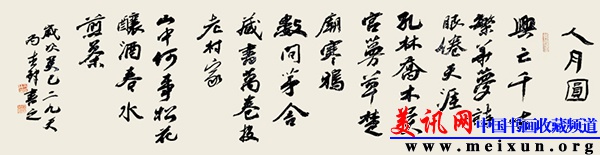 人月圓
興亡千古
繁華夢詩
眼倦天涯
孔林喬木吳
宮蔓草楚
廟寒鴉
數間茅舍
藏書萬卷投
老村家
山中何事松花
釀酒春水
煎茶
歲次癸巳二九天
書之
美讯网 中国书画收藏频道
www.meixun.org